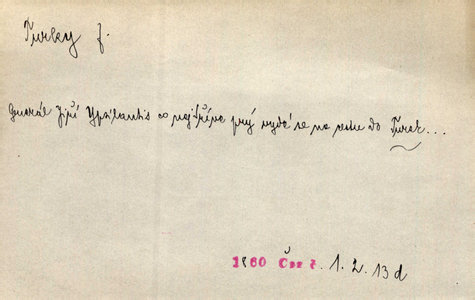 Turky f.
Generál Jiří Ypsilantis co nejdříve prý vydá se na cestu do Turek...
1860 Čas č. 1. 2. 13 d